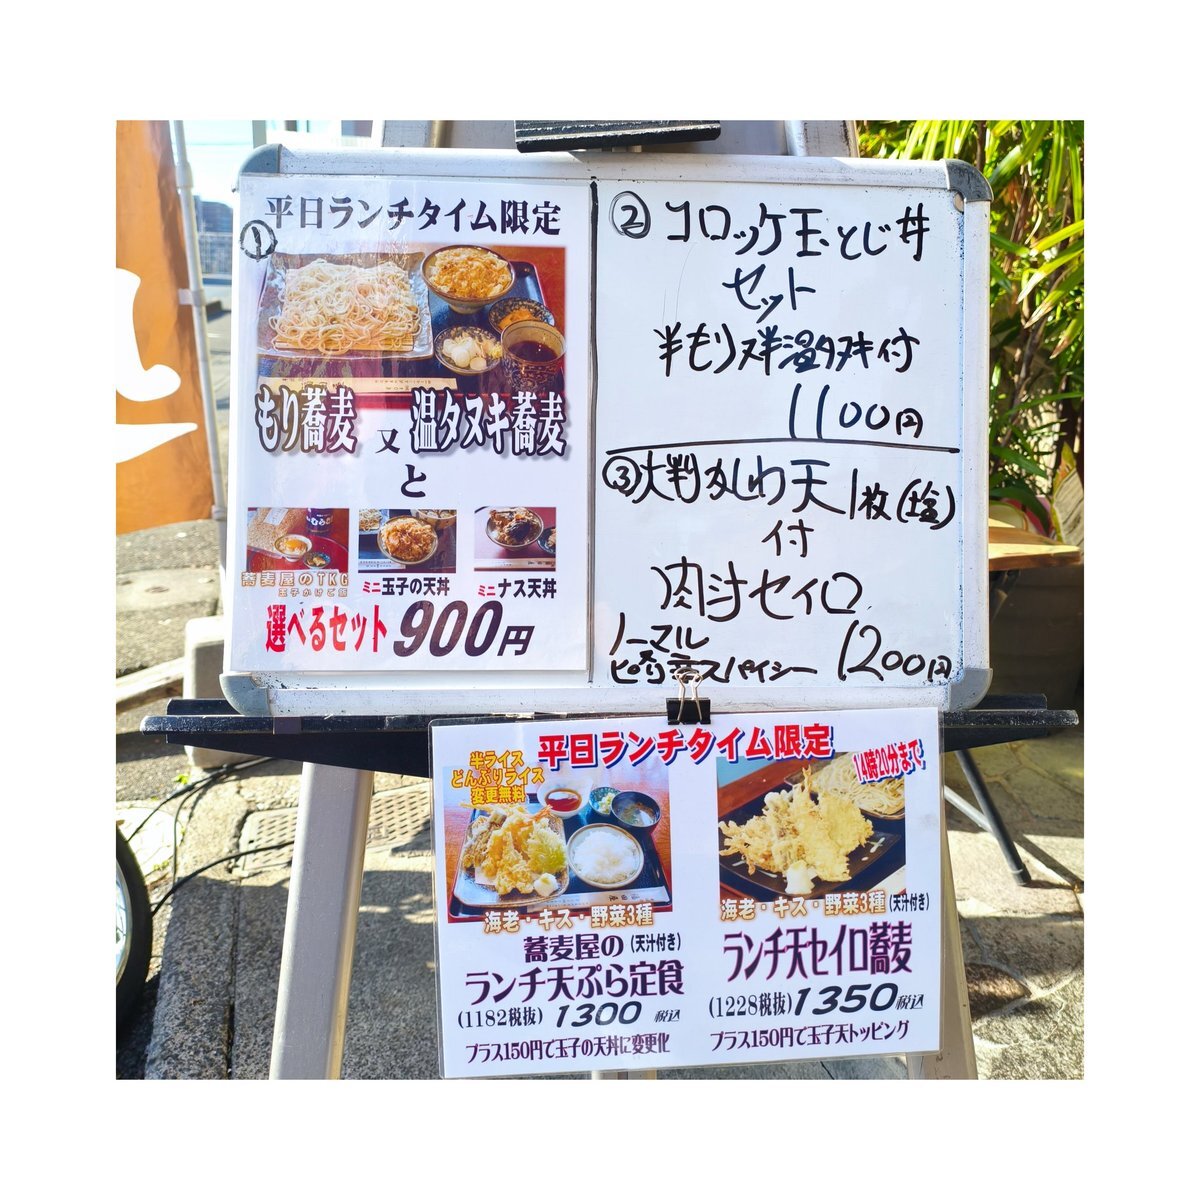 平日ランチタイム限定
①
もり蕎麦 又 温タヌキ蕎麦
と
蕎麦屋のTKG
玉子かけご飯
ミニ玉子の天丼
ミニナス天丼
選べるセット900円
②コロッケ玉とじ丼
セット
半もり又半温タヌキ付
1100円
③大判かしわ天1枚(塩)
付
肉汁セイロ
ノーマル
ピリ辛スパイシー 1200円
平日ランチタイム限定
14時20分まで
半ライス
どんぶりライス
変更無料
海老・キス・野菜3種
蕎麦屋の(天汁付き)
ランチ天ぷら定食
(1182税抜)1300税込
プラス150円で玉子の天丼に変更化
海老・キス・野菜3種(天汁付き)
ランチ天セイロ蕎麦
(1228税抜)1350税込
プラス150円で玉子天トッピング